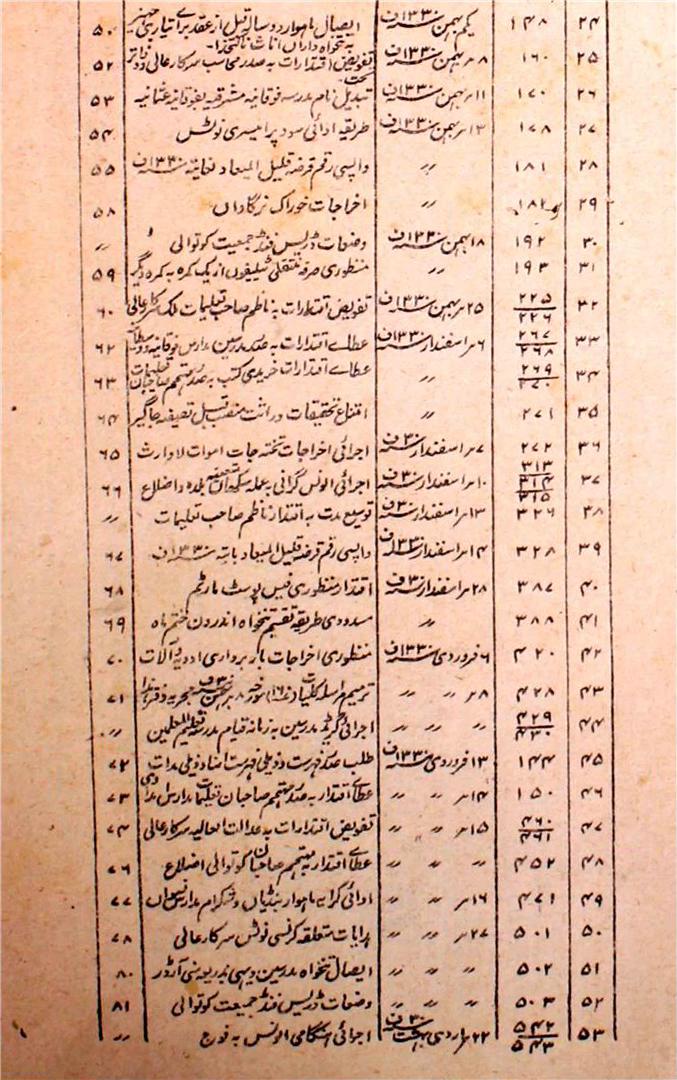 ۲۴ ۱۴۸ یکم بہمن ۱۳۳۰ف ایصال ماہوار دو سال قبل از عقد برائے تیاری جہیز بہ تنخواہ داران اناث ناکتخدا ۵۰
۲۵ ۱۶۰ ۸ بہمن ۱۳۳۰ف تفویض اقتدارات بہ صدر محاسب سرکار عالی ۵۲
۲۶ ۱۷۰ ۱۱ بہمن ۱۳۳۰ف تبدیل نام مدرسہ فوقانیہ مشرقیہ بفوقانیہ عثمانیہ ۵۳
۲۷ ۱۷۸ ۱۳ بہمن ۱۳۳۰ف طریقہ ادائی سود پرامیسری نوٹس ۵۴
۲۸ ۱۸۱ // واپسی رقم قرضہ قلیل المیعاد لغایتہ ۱۳۳۰ف ۵۵
۲۹ ۱۸۲ // اخراجات خوراک نرگاواں ۵۸
۳۰ ۱۹۲ ۱۸ بہمن ۱۳۳۰ف وضعات ڈریس فنڈ جمعیت کوتوالی //
۳۱ ۱۹۳ // منظوری صرفہ منتقلی ٹیلیفون از یک کمرہ بہ کمرہ دیگر ۵۹
۳۲ ۲۲۵ ۲۲۶ ۲۵ بہمن ۱۳۳۰ف تفویض اقتدارات بہ ناظم صاحب تعلیمات ملک سرکار عالی ۶۰
۳۳ ۲۶۷ ۲۶۸ ۶ اسفندار ۱۳۳۰ف عطائے اقتدارات بہ صدر مدرسین مدارس فوقانیہ و وسطانیہ ۶۲
۳۴ ۲۶۹ ۲۷۰ // عطائے اقتدارات خریدی کتب بہ صدر مہتمم صاحبان تعلیمات ۶۳
۳۵ ۲۷۱ // امتناع تحقیقات وراثت منصب قبل تصفیہ جاگیر ۶۴
۳۶ ۲۷۲ ۷ اسفندار ۳۰ف اجرائی اخراجات تختہ جات اموات لاوارث ۶۵
۳۷ ۳۱۳ ۳۱۴ ۳۱۵ ۱۰ اسفندار ۳۰ف اجرائی الونس گرانی بہ عملہ بلدہ و اضلاع ۶۶
۳۸ ۳۲۶ ۱۳ اسفندار ۳۰ف توسیع مدت بہ اقتدار ناظم صاحب تعلیمات //
۳۹ ۳۲۸ ۱۴ اسفندار ۱۳۳۰ف واپسی رقم قرضہ قلیل المیعاد بابتہ ۱۳۳۰ف ۶۷
۴۰ ۳۸۷ ۲۸ اسفندار ۳۰ف اقتدار منظوری فیس پوسٹ مارٹم ۶۸
۴۱ ۳۸۸ // مسدودی طریقہ تقسیم تنخواہ اندرون ختم ماہ ۶۹
۴۲ ۴۲۰ ۶ فروردی ۱۳۳۰ف منظوری اخراجات باربرداری ادویہ و آلات ۷۰
۴۳ ۴۲۸ ۲۸ // // ترمیم مراسلہ کلیات (۱۶) مورخہ ۸ بہمن ۳۰ف مجریہ دفتر ہذا ۷۱
۴۴ ۴۲۹ ۴۳۰ // // // اجرائی گریڈ مدرسین بہ زمانہ قیام مدرسہ تعلیم المعلمین //
۴۵ ۱۴۴ ۱۳ فروردی ۱۳۳۰ف طلب صدر فہرست و ذیلی فہرست اسناد ذیلی مدات ۷۲
۴۶ ۱۵۰ ۱۴ // // عطائے اقتدار بہ صدر مہتمم صاحبان تعلیمات ۷۳
۴۷ ۴۶۰ ۴۶۱ ۱۵ // // تفویض اقتدارات بہ عدالت العالیہ سرکار عالی ۷۴
۴۸ ۴۵۲ // // // عطائے اقتدار بہ مہتمم صاحبان کوتوالی اضلاع ۷۶
۴۹ ۴۷۱ ۱۶ // // ادائی کرایہ ماہوار بنڈیاں و شکرام مدارس نسواں ۷۷
۵۰ ۵۰۱ ۲۷ // // ہدایات متعلقہ کرنسی نوٹس سرکار عالی ۷۸
۵۱ ۵۰۲ // // // ایصال تنخواہ مدرسین دیہی بذریعہ منی آرڈر ۸۰
۵۲ ۵۰۳ // // // وضعات ڈریس فنڈ جمعیت کوتوالی ۸۱
۵۳ ۵۴۲ ۵۴۳ ۲۲ اردی بہشت ۳۰ف اجرائی ہنگامی الونس بہ فوج //